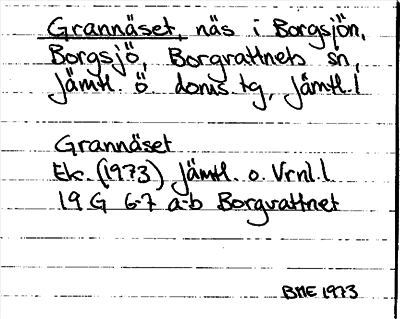 Grannäset, näs i Borgsjön,
Borgsjö, Borgvattnets sn,
Jämtl. ö doms. tg, Jämtl. l
Grannäset
Ek. (1973) Jämtl. o. Vrnl. l.
19 G 6-7 a-b Borgvattnet
BME 1973